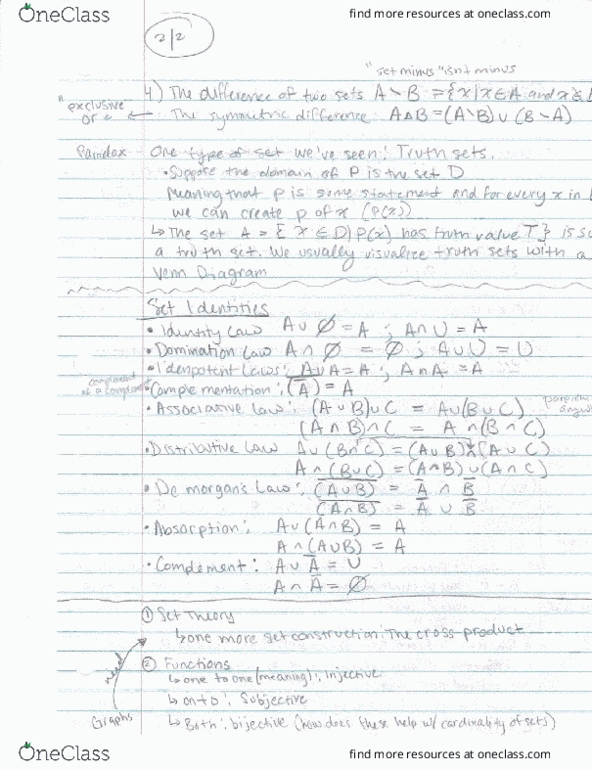 OneClass
find more resources at oneclass.com
2/2
"set minus" isn't minus
4) The difference of two sets A \ B = {x | x ∈ A and x ∉
"exclusive or" ← The symmetric difference A Δ B = (A \ B) ∪ (B - A)
Paradox One type of set we've seen: Truth sets.
• Suppose the domain of P is the set D
Meaning that p is some statement and for every x in
we can create p of x (P(x))
↳ The set A = { x ∈ D | P(x) has truth value T } is
a truth set. We usually visualize truth sets with a
Venn Diagram
Set Identities
• Identity Law A ∪ ∅ = A ; A ∩ U = A
• Domination Law A ∩ ∅ = ∅ ; A ∪ U = U
• Idenpotent Laws: A ∪ A = A ; A ∩ A = A
complement of a complement
• Complementation: (A̅̅) = A
• Associative law: (A ∪ B) ∪ C = A ∪ (B ∪ C)
(A ∩ B) ∩ C = A ∩ (B ∩ C)
• Distributive Law A ∪ (B ∩ C) = (A ∪ B) ∩ (A ∪ C)
A ∩ (B ∪ C) = (A ∩ B) ∪ (A ∩ C)
• De morgan's Law: (A ∪ B)̅ = A̅ ∩ B̅
(A ∩ B)̅ = A̅ ∪ B̅
• Absorption: A ∪ (A ∩ B) = A
A ∩ (A ∪ B) = A
• Complement: A ∪ A̅ = U
A ∩ A̅ = ∅
① Set Theory
↳ one more set construction: The cross product
② Functions
↳ one to one (meaning): Injective
↳ onto: Subjective
Graphs
↳ Both: bijective (how does these help w/ cardinality of sets)
OneClass
find more resources at oneclass.com